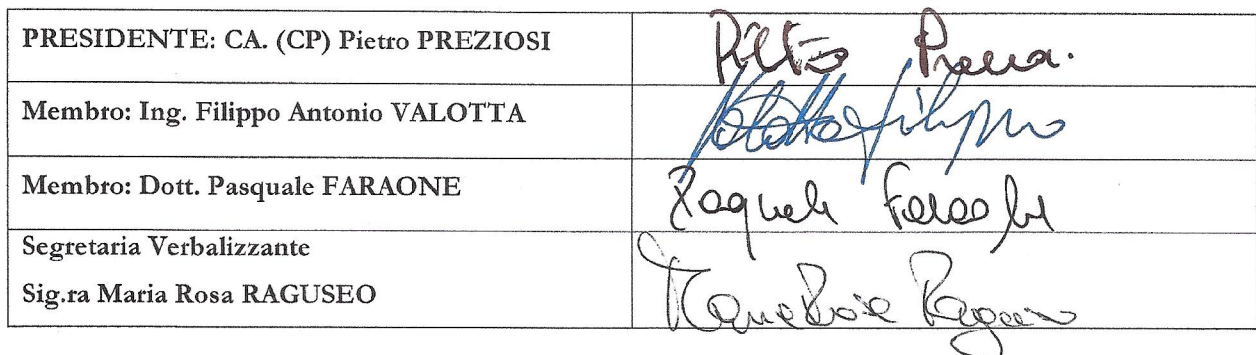 PRESIDENTE: CA. (CP) Pietro PREZIOSI
Membro: Ing. Filippo Antonio VALOTTA
Valotta Filippo
Membro: Dott. Pasquale FARAONE
Pasquale Faraone
Segretaria Verbalizzante
Sig.ra Maria Rosa RAGUSEO
Maria Rosa Raguseo